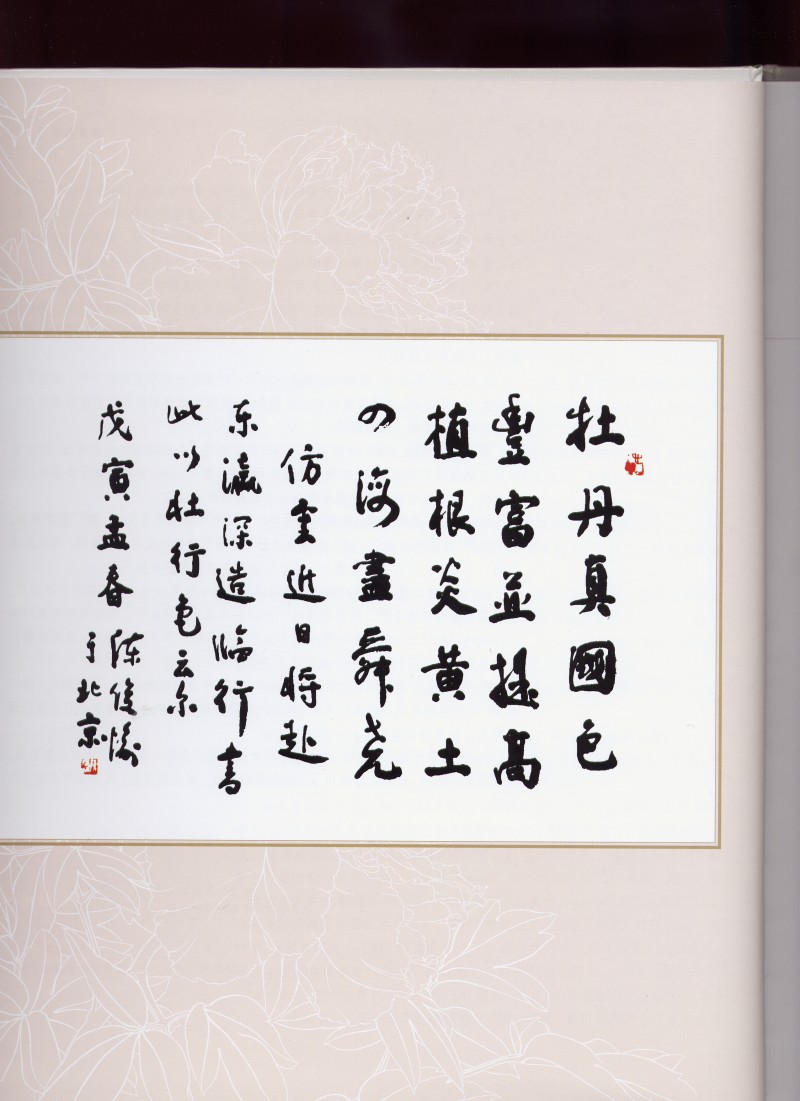 牡丹真國色
豐富並提高
植根炎黃土
四海盡舜尧
仿重近日将赴
东瀛深造临行书
此以壮行色云尔
戊寅孟春陈俊愉
于北京